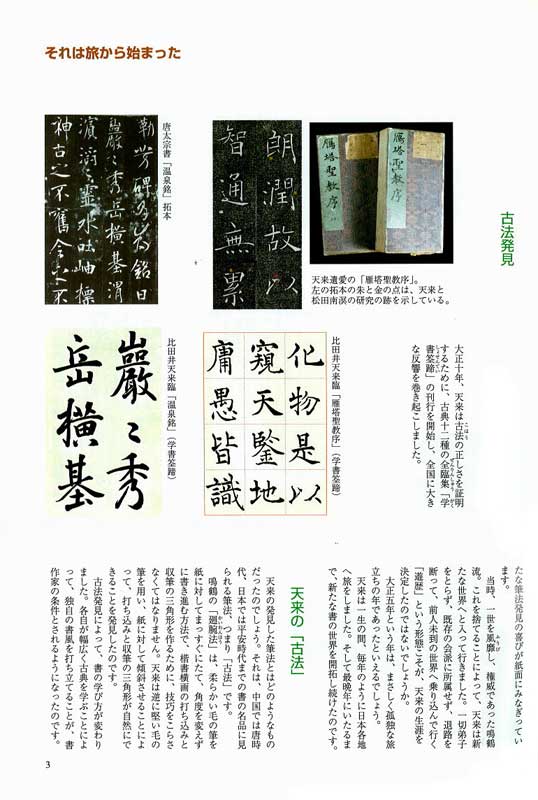 それは旅から始まった
古法発見
雁塔聖教序
雁塔聖教序
天来遺愛の「雁塔聖教序」。
左の拓本の朱と金の点は、天来と
松田南溟の研究の跡を示している。
朗潤故以
智通無累
唐太宗書「温泉銘」拓本
勒労碑多為銘日
巌々秀岳横基渭
濱滔々霊水吐岫標
神古之不舊今之不
大正十年、天来は古法の正しさを証明
するために、古典十二種の全臨集「学
書筌蹄」の刊行を開始し、全国に大き
な反響を巻き起こしました。
比田井天来臨「雁塔聖教序」(学書筌蹄)
化物是以
窺天鑒地
庸愚皆識
比田井天来臨「温泉銘」(学書筌蹄)
巌々秀
岳横基
たな筆法発見の喜びが紙面にみなぎってい
ます。
当時、一世を風靡し、権威であった鳴鶴
流。これを捨てることによって、天来は新
たな世界へと入って行きました。一切弟子
をとらず、既存の会派に所属せず、退路を
断って、前人未到の世界へ乗り込んで行く
「遊歴」という形態こそが、天来の生涯を
決定したのではないでしょうか。
大正五年という年は、まさしく孤独な旅
立ちの年であったといえるでしょう。
天来は一生の間、毎年のように日本各地
へ旅をしました。そして最晩年にいたるま
で、新たな書の世界を開拓し続けたのです。
天来の「古法」
天来の発見した筆法とはどのようなもの
だったのでしょう。それは、中国では唐時
代、日本では平安時代までの書の名品に見
られる筆法、つまり「古法」です。
鳴鶴の「廻腕法」は、柔らかい毛の筆を
紙に対してまっすぐにたて、角度を変えず
に書き進む方法で、楷書横画の打ち込みと
収筆の三角形を作るために、技巧をこらさ
なくてはなりません。天来は逆に堅い毛の
筆を用い、紙に対して傾斜させることによ
って、打ち込みと収筆の三角形が自然にで
きることを発見したのです。
古法発見によって、書の学び方が変わり
ました。各自が幅広く古典を学ぶことによ
って、独自の書風を打ち立てることが、書
作家の条件とされるようになったのです。
3